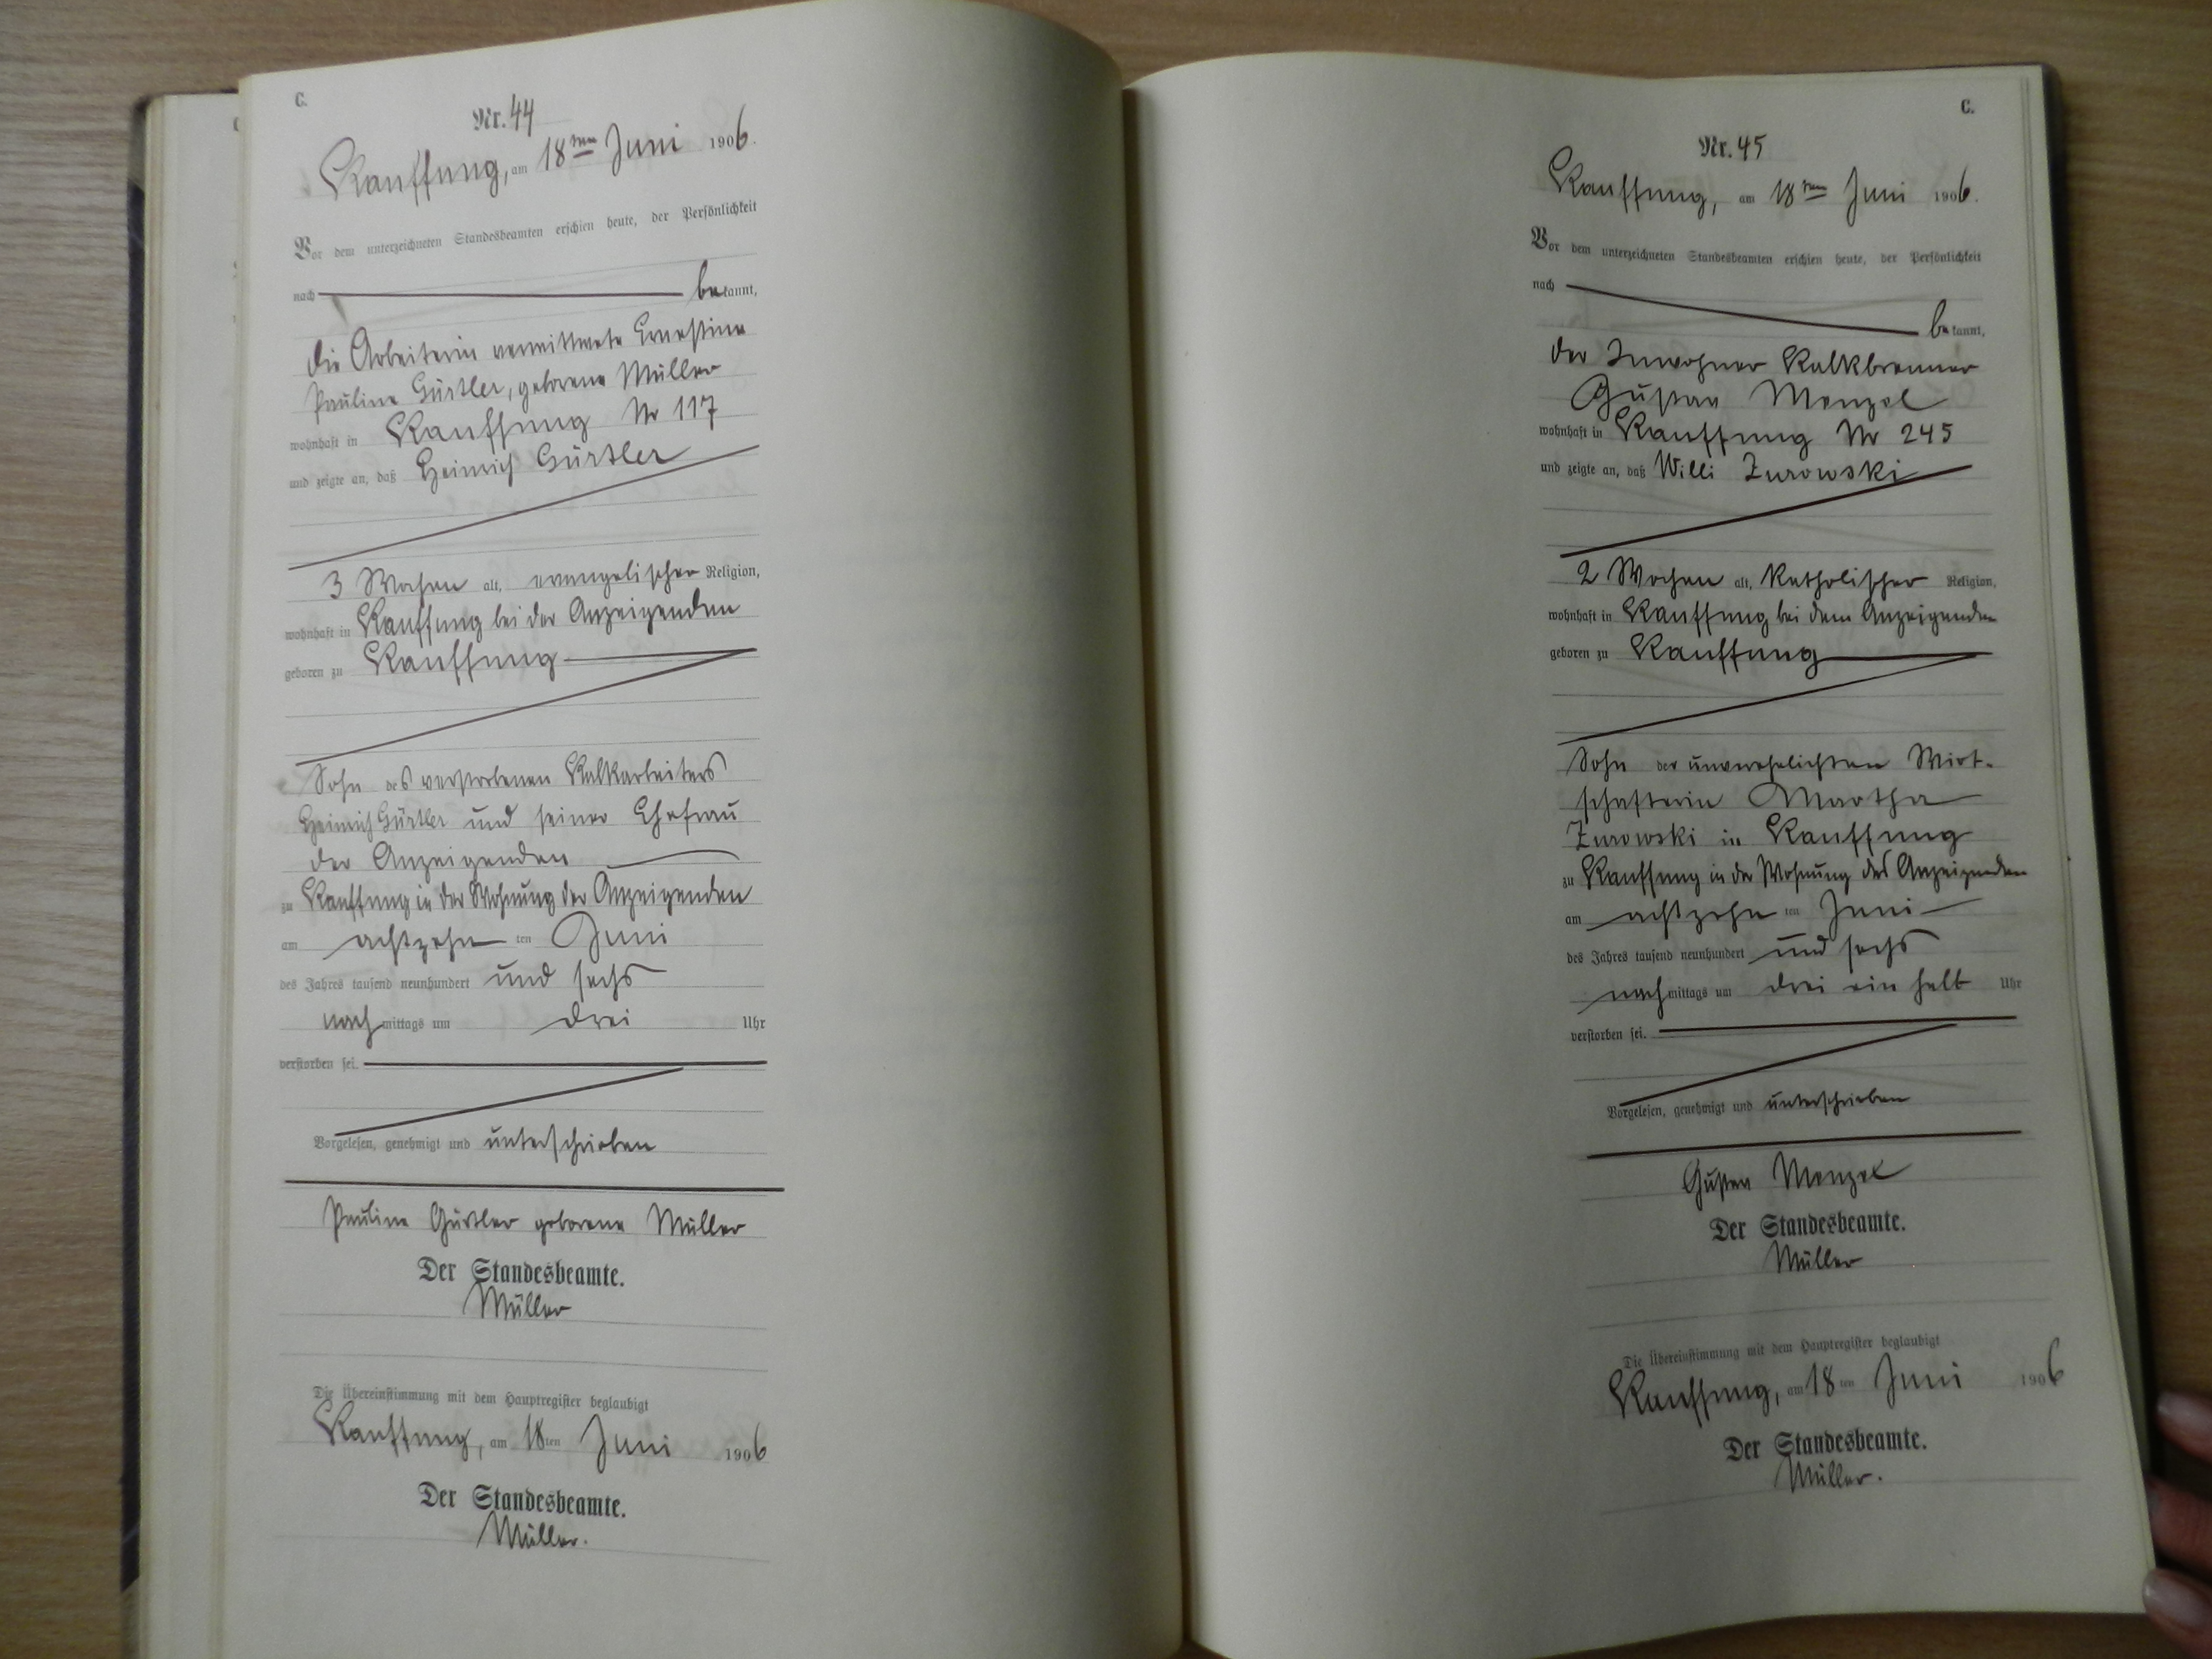 C.
Nr. 44
Kauffung, am 18ten Juni 1906.
Vor dem unterzeichneten Standesbeamten erschien heute, der Persönlichkeit
nach bekannt,
die Arbeiterin verwittwete Ernestine
Pauline Gürtler, geborene Müller
wohnhaft in Kauffung Nr 117
und zeigte an, daß Heinrich Gürtler
3 Wochen alt, evangelischer Religion,
wohnhaft in Kauffung bei der Anzeigenden
geboren zu Kauffung
Sohn des verstorbenen Kalkarbeiters
Heinrich Gürtler und seiner Ehefrau
der Anzeigenden
zu Kauffung in der Wohnung der Anzeigenden
am achtzehn ten Juni
des Jahres tausend neunhundert und sechs
nachmittags um drei Uhr
verstorben sei.
Vorgelesen, genehmigt und unterschrieben
Pauline Gürtler geborene Müller
Der Standesbeamte.
Müller
Die Übereinstimmung mit dem Hauptregister beglaubigt
Kauffung, am 18ten Juni 1906
Der Standesbeamte.
Müller.
C.
Nr. 45
Kauffung, am 18ten Juni 1906.
Vor dem unterzeichneten Standesbeamten erschien heute, der Persönlichkeit
nach bekannt,
der Inwohner Kalkbrenner
Gustav Menzel
wohnhaft in Kauffung Nr 245
und zeigte an, daß Willi Zurowski
2 Wochen alt, Katholischer Religion,
wohnhaft in Kauffung bei dem Anzeigenden
geboren zu Kauffung
Sohn der unverehelichten Wirt-
schafterin Martha
Zurowski in Kauffung
zu Kauffung in der Wohnung des Anzeigenden
am achtzehn ten Juni
des Jahres tausend neunhundert und sechs
nachmittags um drei ein halb Uhr
verstorben sei.
Vorgelesen, genehmigt und unterschrieben
Gustav Menzel
Der Standesbeamte.
Müller
Die Übereinstimmung mit dem Hauptregister beglaubigt
Kauffung, am 18ten Juni 1906
Der Standesbeamte.
Müller.